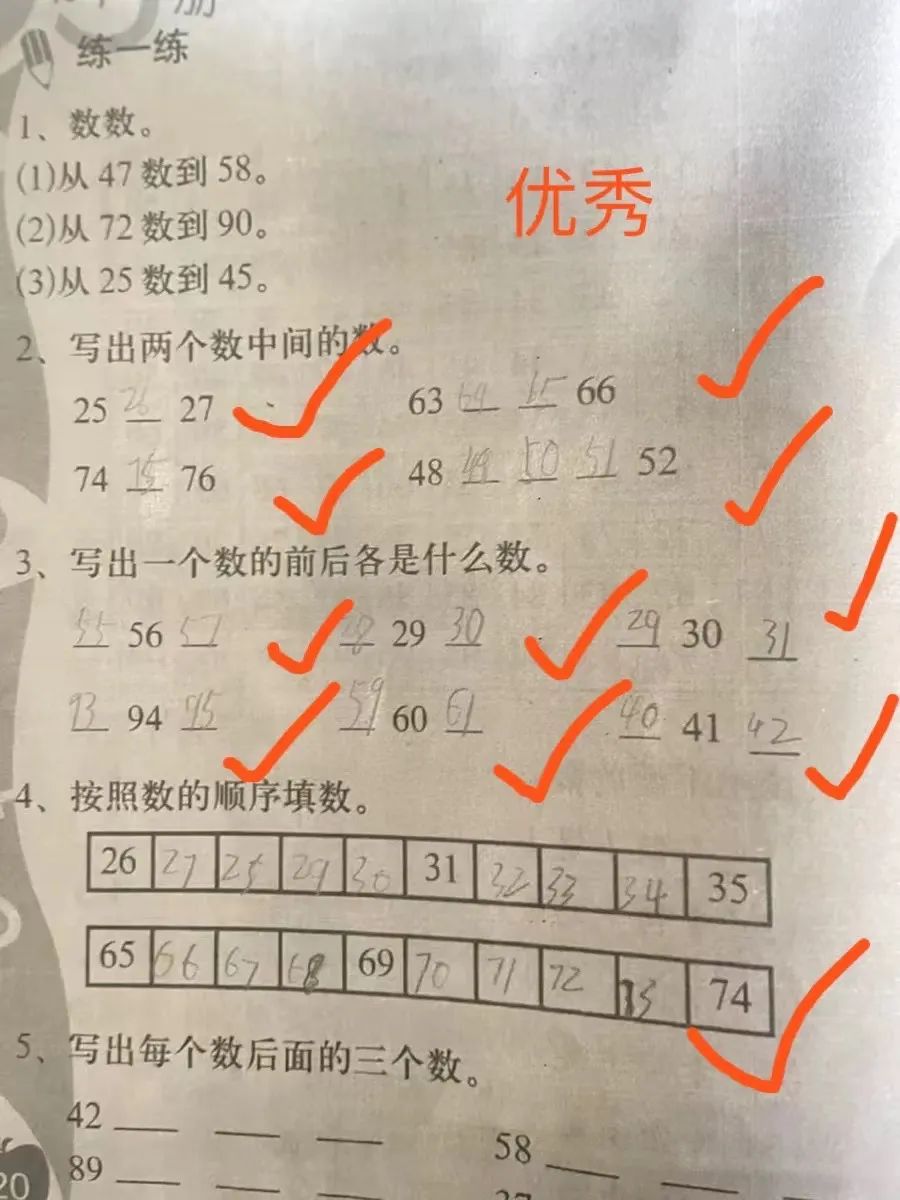 练一练
1、数数。
(1)从 47 数到 58。
优秀
(2)从 72 数到 90。
(3)从 25 数到 45。
2、写出两个数中间的数。
25 26 27 63 64 65 66
74 75 76 48 49 50 51 52
3、写出一个数的前后各是什么数。
55 56 57 28 29 30 29 30 31
93 94 95 59 60 61 40 41 42
4、按照数的顺序填数。
26 27 28 29 30 31 32 33 34 35
65 66 67 68 69 70 71 72 73 74
5、写出每个数后面的三个数。
42 58
89
20